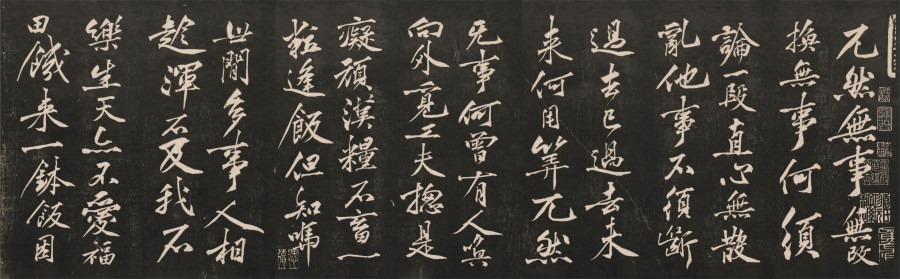 兀然無事無改
換無事何須
論一段直心無散
亂他事不須斷
過去已過去未
来何用筭兀然
无事何曾有人喚
向外覓工夫揔是
癡頑漢糧不畜一
粒逢飯但知嗎
世間多事人相
趁渾不及我不
樂生天亦不愛福
田餓来一鉢飯困